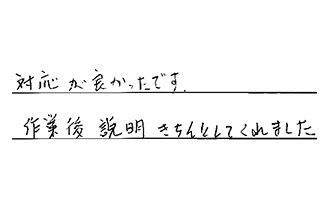 対応が良かったです.
作業後 説明 きちんとしてくれました